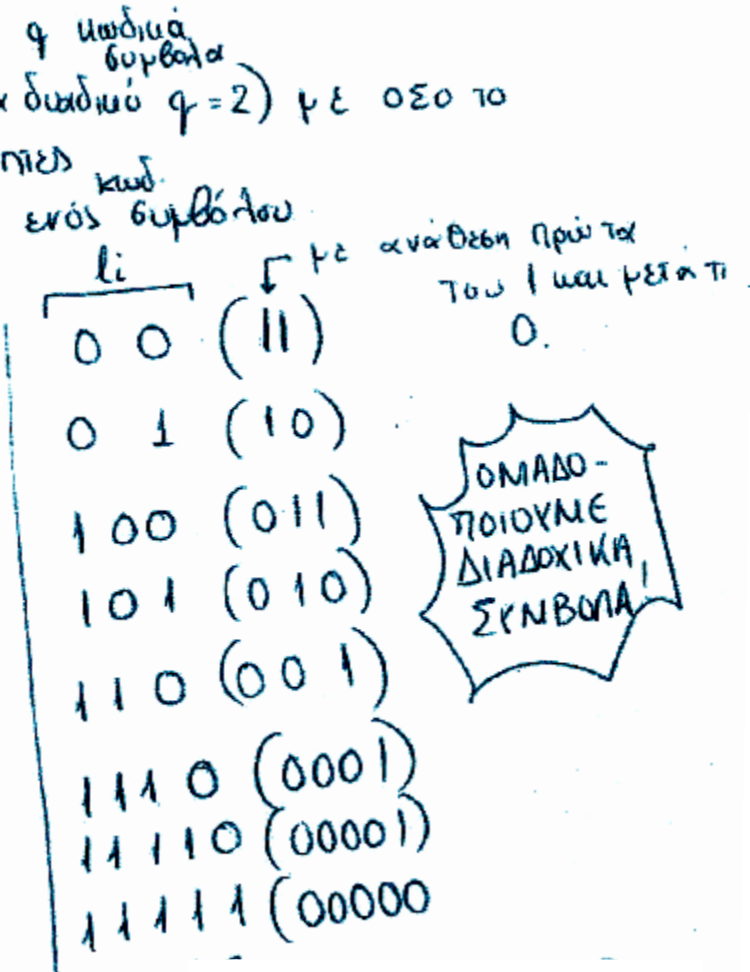 q κωδικά
σύμβολα
δυαδικό q = 2) με οσο το
κωδ.
ενός συμβόλου
li
με ανάθεση πρώτα
του 1 και μετά τι
0.
0 0 (11)
0 1 (10)
1 0 0 (011)
1 0 1 (010)
1 1 0 (001)
1 1 1 0 (0001)
1 1 1 1 0 (00001)
1 1 1 1 1 (00000
ΟΜΑΔΟ-
ΠΟΙΟΥΜΕ
ΔΙΑΔΟΧΙΚΑ
ΣΥΜΒΟΛΑ!